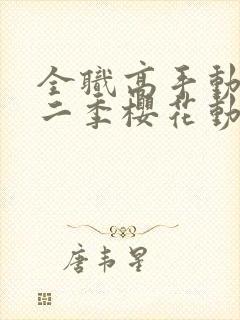 全職高手動
二季櫻花動
唐韦星